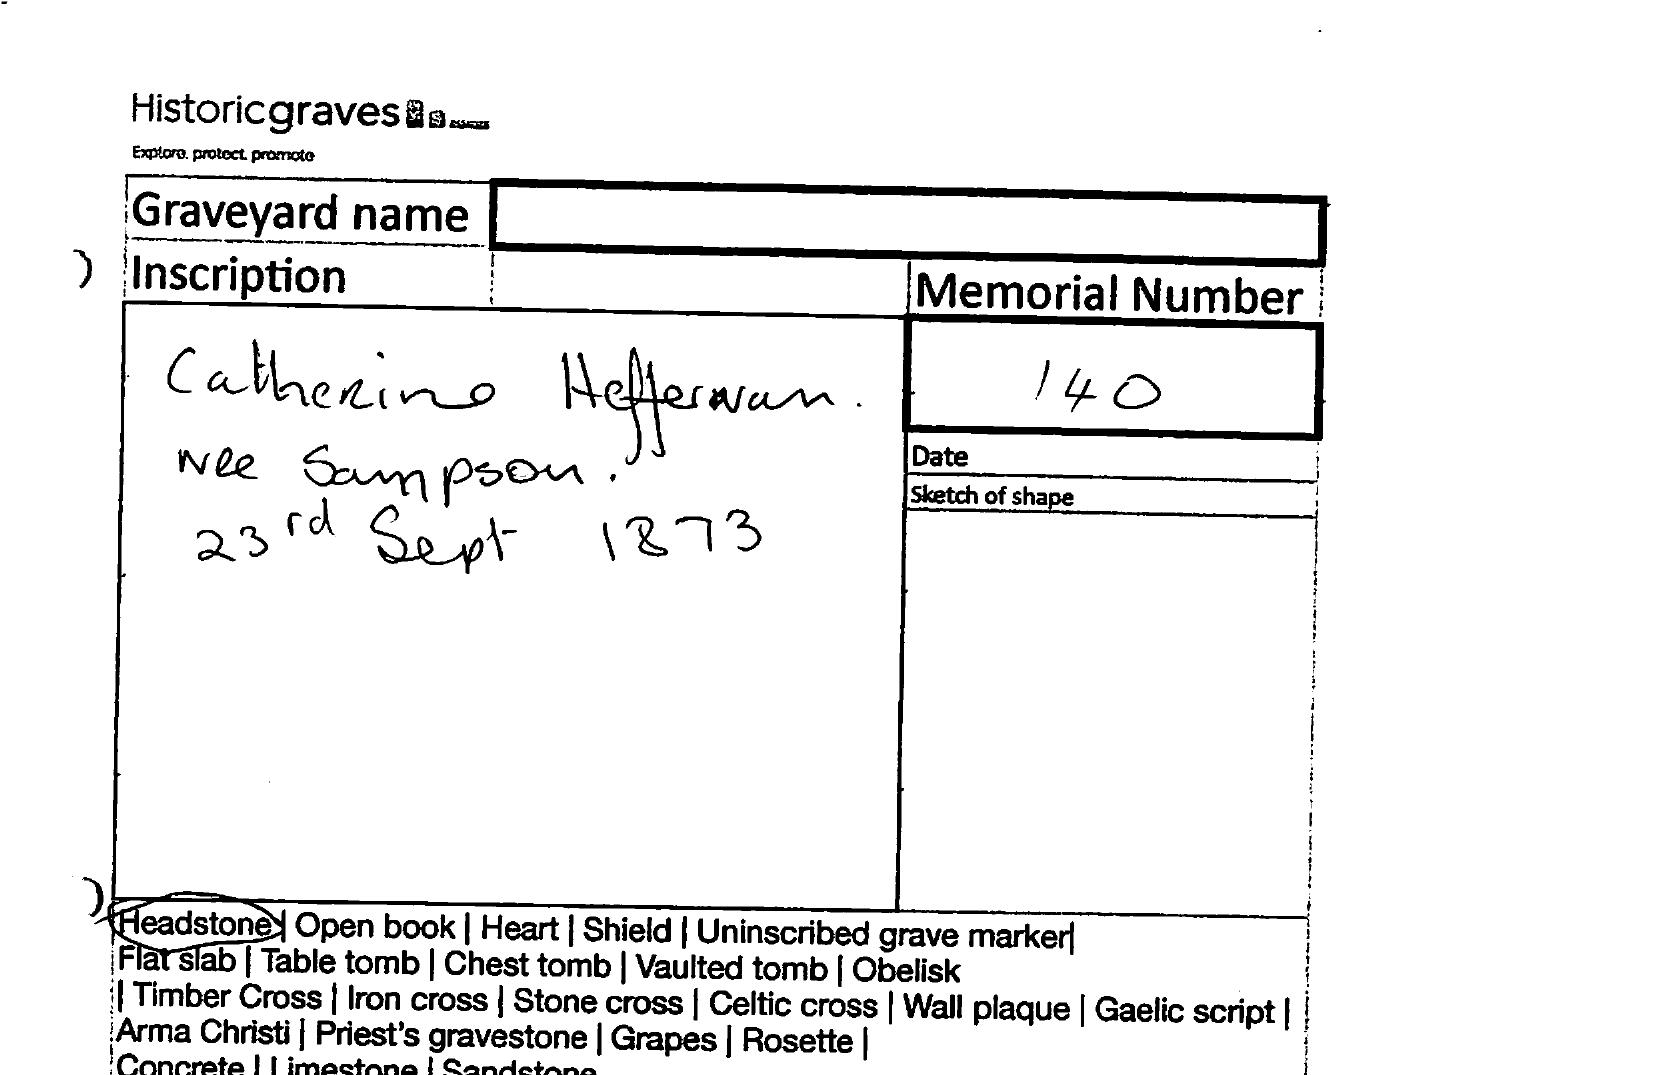 Historicgraves
Explore. protect. promote
Graveyard name
Inscription
Memorial Number
Catherine Heffernan.
nee Sampson.
23rd Sept 1873
140
Date
Sketch of shape
Headstone | Open book | Heart | Shield | Uninscribed grave marker|
Flat slab | Table tomb | Chest tomb | Vaulted tomb | Obelisk
| Timber Cross | Iron cross | Stone cross | Celtic cross | Wall plaque | Gaelic script |
Arma Christi | Priest's gravestone | Grapes | Rosette |
Concrete | Limestone | Sandstone